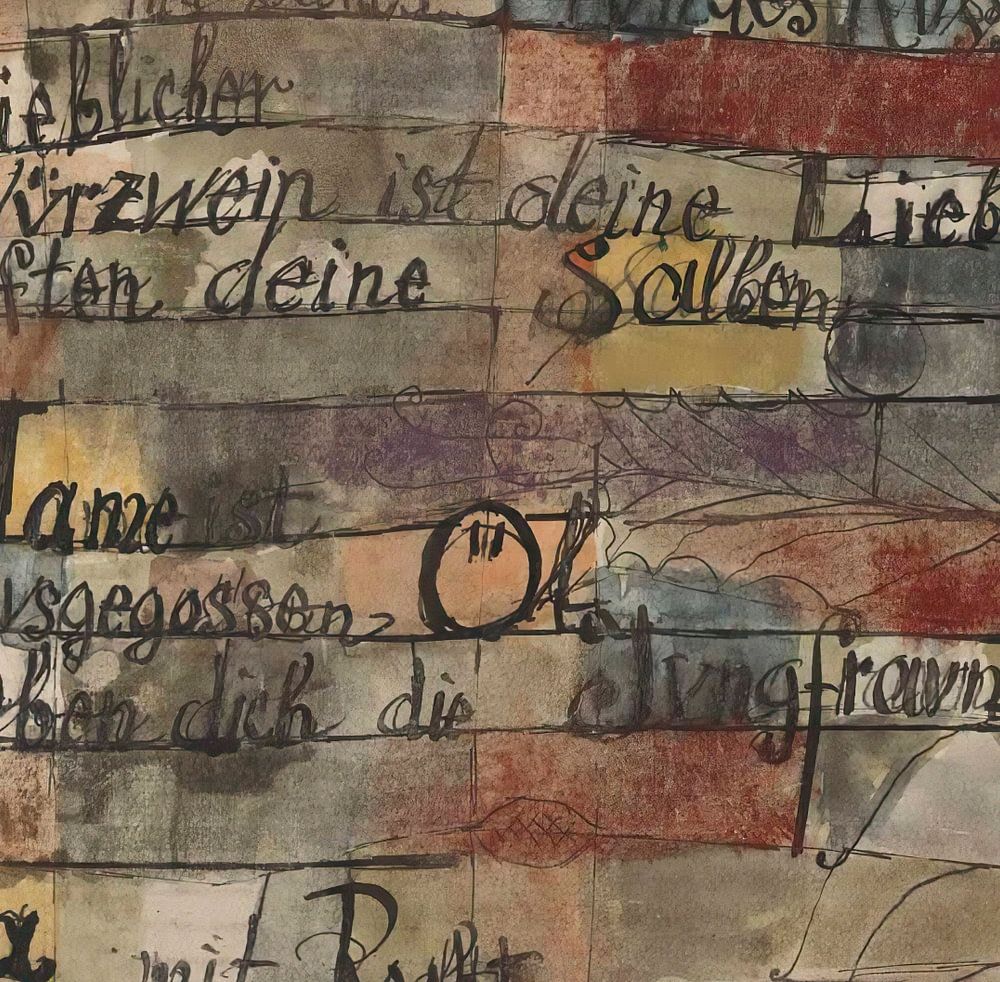 ieblicher
ürzwein ist deine Lieb
ften deine Salben
Name ist
usgegossen, Öl
ben dich die Jungfraun
mit Recht